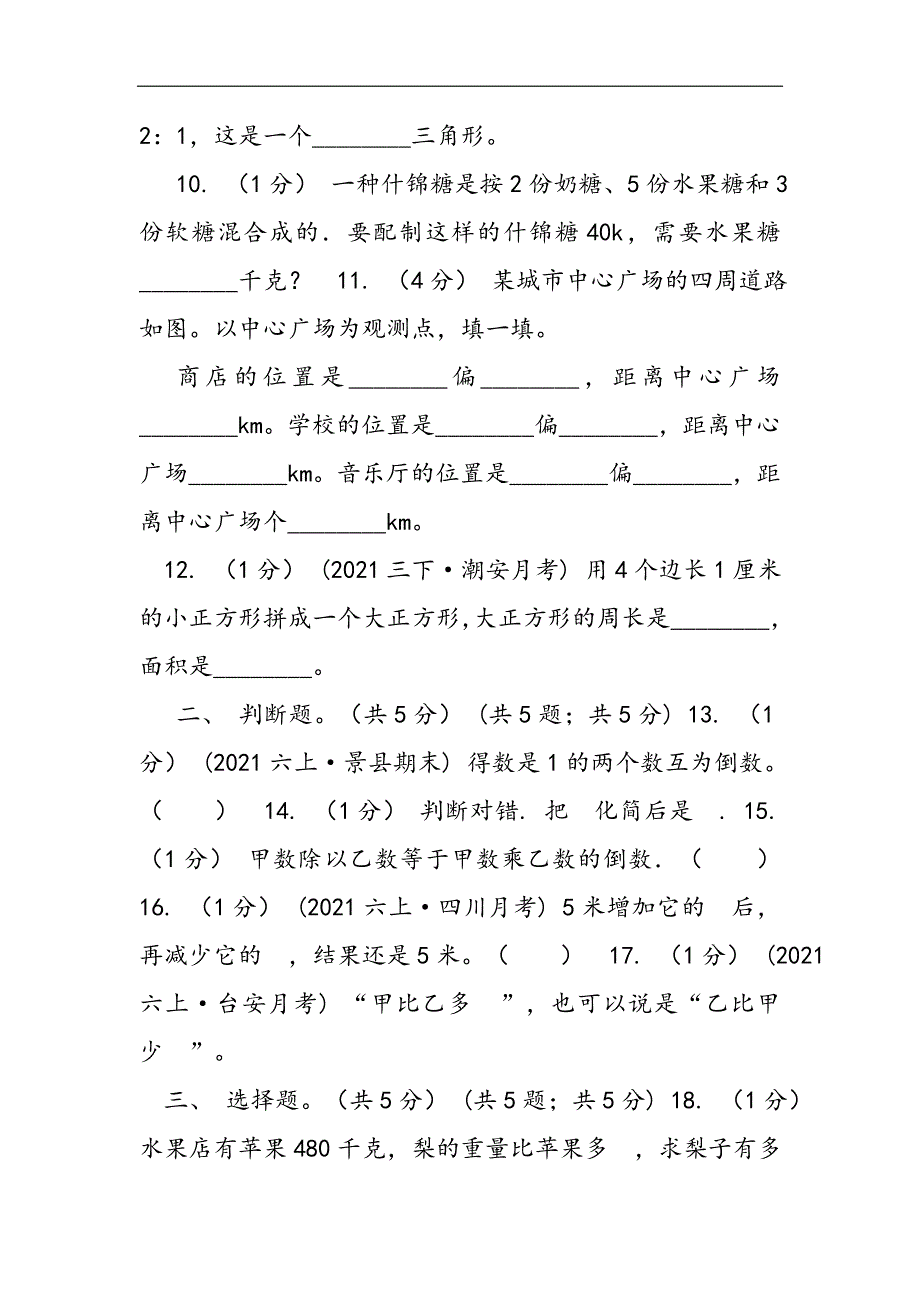 2：1，这是一个________三角形。
10. （1分） 一种什锦糖是按2份奶糖、5份水果糖和3
份软糖混合成的．要配制这样的什锦糖40k，需要水果糖
________千克？ 11. （4分） 某城市中心广场的四周道路
如图。以中心广场为观测点，填一填。
商店的位置是________偏________，距离中心广场
________km。学校的位置是________偏________，距离中心
广场________km。音乐厅的位置是________偏________，距
离中心广场个________km。
12. （1分） (2021三下·潮安月考) 用4个边长1厘米
的小正方形拼成一个大正方形,大正方形的周长是________，
面积是________。
二、 判断题。（共5分） (共5题；共5分) 13. （1
分） (2021六上·景县期末) 得数是1的两个数互为倒数。
（  ） 14. （1分） 判断对错. 把  化简后是  . 15.
（1分） 甲数除以乙数等于甲数乘乙数的倒数．（  ）
16. （1分） (2021六上·四川月考) 5米增加它的  后，
再减少它的  ，结果还是5米。（  ） 17. （1分） (2021
六上·台安月考) “甲比乙多  ”，也可以说是“乙比甲
少  ”。
三、 选择题。（共5分） (共5题；共5分) 18. （1分）
水果店有苹果480千克，梨的重量比苹果多  ，求梨子有多